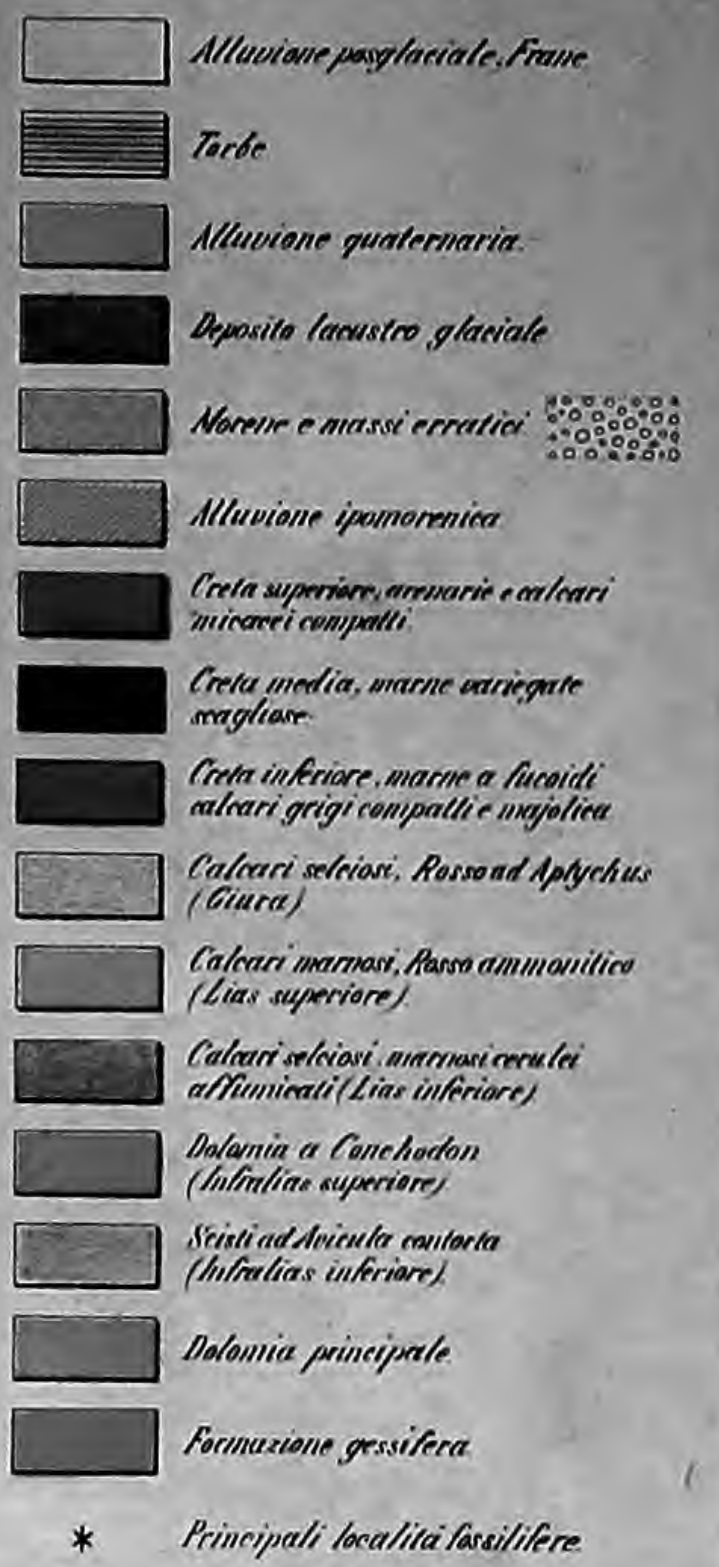 Alluvione posglaciale, Frane
Torbe
Alluvione quaternaria.
Deposito lacustro glaciale
Morene e massi erratici
Alluvione ipomorenica
Creta superiore, arenarie e calcari
micacei compatti.
Creta media, marne variegate
scagliose
Creta inferiore, marne a fucoidi
calcari grigi compatti e majolica
Calcari selciosi, Rosso ad Aptychus
(Giura)
Calcari marnosi, Rosso ammonitico
(Lias superiore).
Calcari selciosi, marnosi cerulei
affumicati (Lias inferiore)
Dolomia a Conchodon
(Infralias superiore)
Scisti ad Avicula contorta
(Infralias inferiore).
Dolomia principale
Formazione gessifera
Principali località fossilifere.